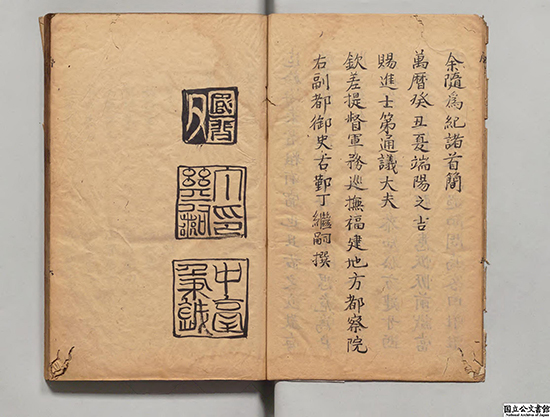 余隨為紀諸首簡
萬曆癸丑夏端陽之吉
賜進士第通議大夫
欽差提督軍務巡撫福建地方都察院
右副都御史古鄞丁繼嗣撰
中亭
国立公文書館
National Archives of Japan